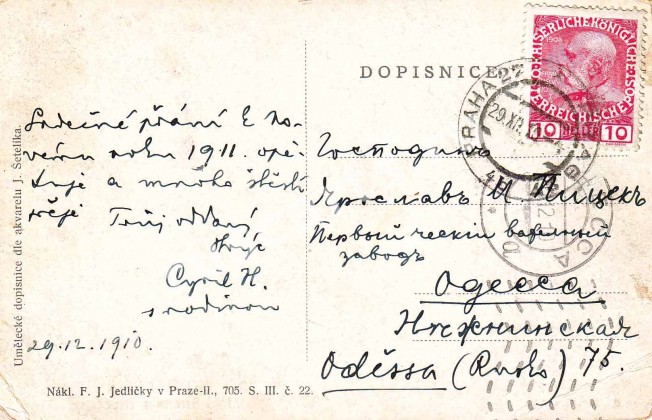 Umělecké dopisnice dle akvarelu J. Šetelíka.
DOPISNICE
Srdečné přání k no-
vému roku 1911. opě-
tuje a mnoho štěstí
přeje Tvůj oddaný
strýc
Cyril H.
s rodinou
29.12.1910.
Nákl. F. J. Jedličky v Praze-II., 705. S. III. č. 22.
KAISERLICHE KÖNIGLICHE
ÖSTERREICHISCHE POST
1908
10 HELLER 10
PRAHA 27
29.XII
Господинъ
Ярославъ И. Пицекъ
Первый ческій вафельный
заводъ
Одесса
Нѣжинская
Oděssa (Rusko) 75.